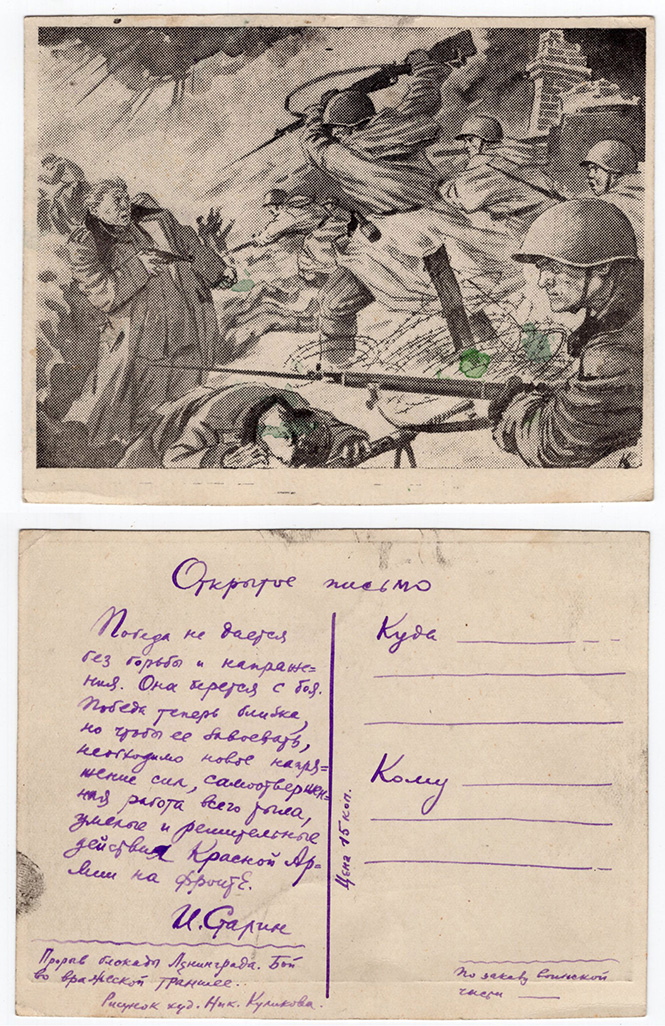 Открытое письмо
Победа не дается
без борьбы и напраже-
ния. Она берется с боя.
Победа теперь близка,
но чтобы ее завоевать,
необходимо новое напря-
жение сил, самоотвержен-
ная работа всего тыла,
умелые и решительные
действия Красной Ар-
мии на фронте.
И. Сталин
Прорыв блокады Ленинграда. Бой
во вражеской траншее..
Рисунок худ. Ник. Куликова.
Цена 15 коп.
Куда
Кому
По заказу воинской
части